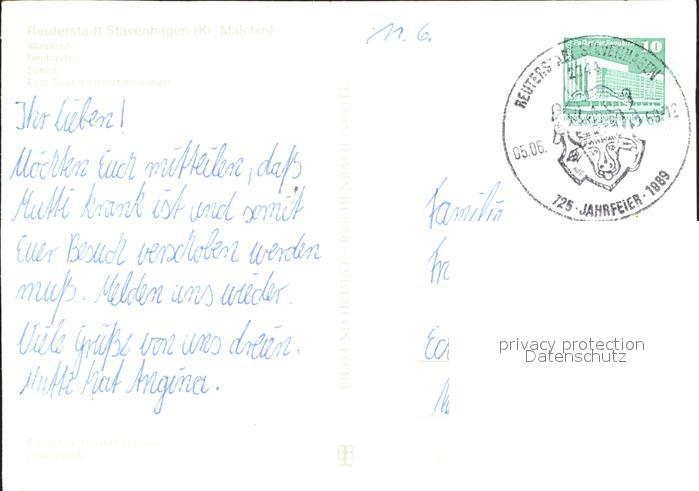 Reuterstadt Stavenhagen (Kr. Malchin)
Waldbad
Neubauten
Schloß
Fritz-Reuter-Literaturmuseum
11. 6.
Ihr Lieben!
Möchten Euch mitteilen, daß
Mutti krank ist und somit
Euer Besuch verschoben werden
muß. Melden uns wieder.
Viele Grüße von uns dreien.
Mutti hat Angina.
BILD UND HEIMAT REICHENBACH
Palast der Republik 10
REUTERSTADT STAVENHAGEN
2044
05.06.
725-JAHRFEIER-1989
Familie
Fr
Ec
privacy protection
Datenschutz